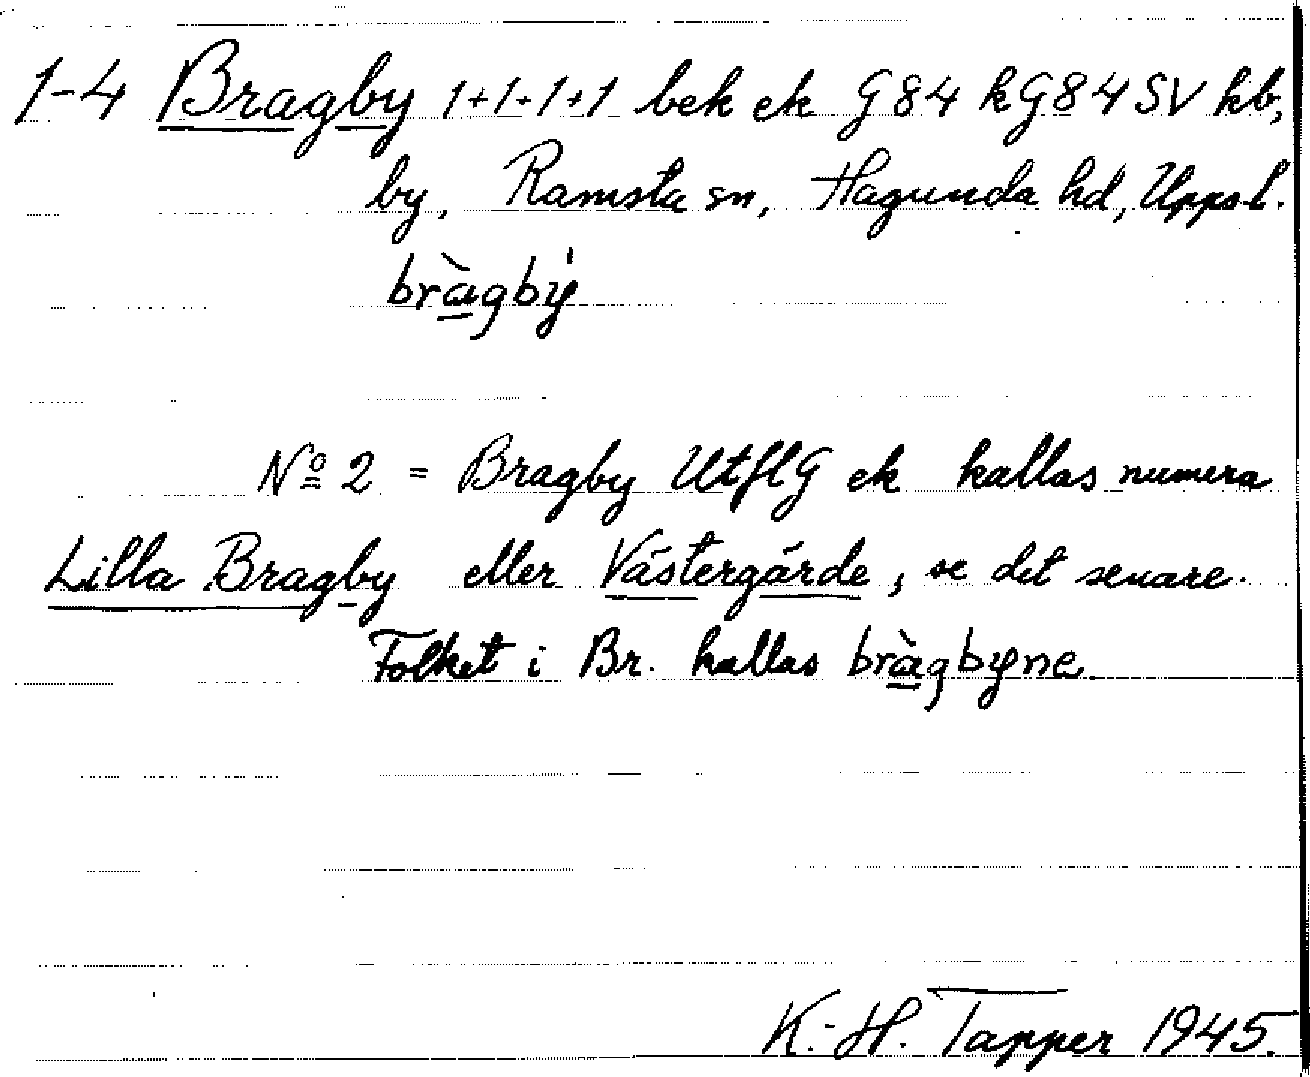 1-4 Bragby 1+1+1+1 bek ek G84 kG84SV kb,
by, Ramsta sn, Hagunda hd, Upps.l.
bràgbý
Nº 2 = Bragby UtflG ek kallas numera
Lilla Bragby eller Västergärde, se det senare.
Folket i Br. kallas bràgbyne
K.-H. Tapper 1945.